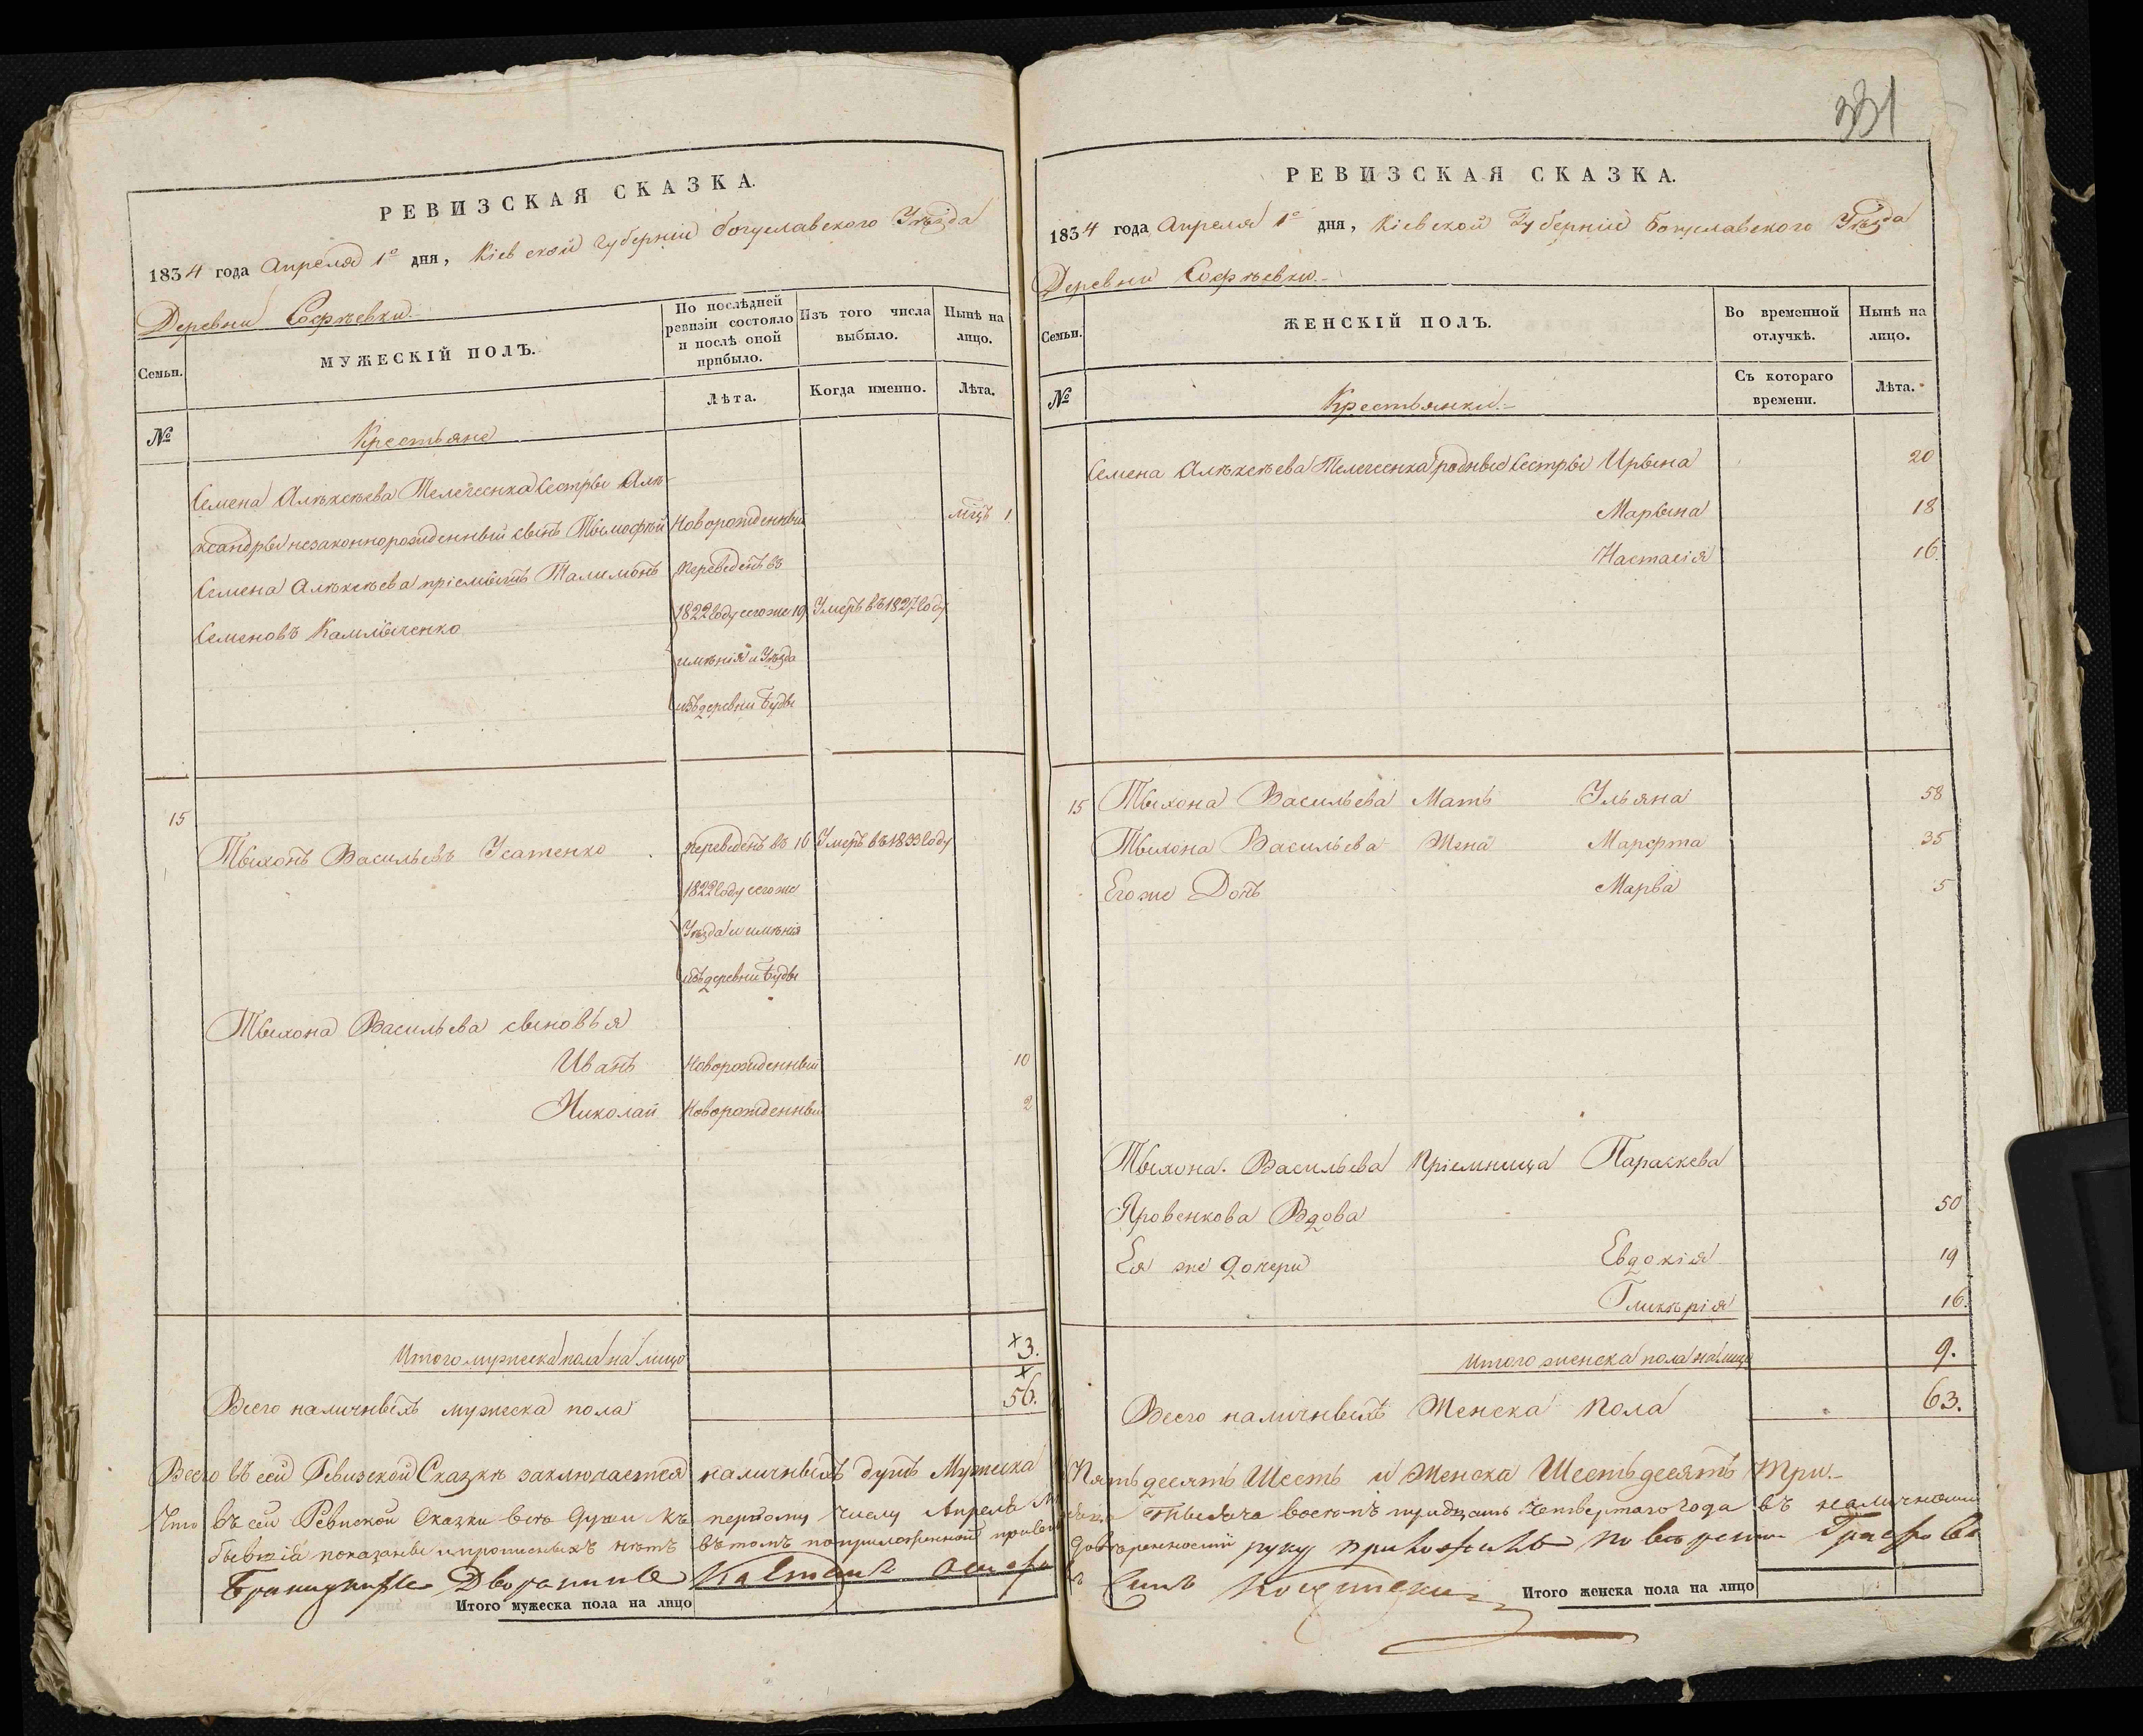 РЕВИЗСКАЯ СКАЗКА.
1834 года Апреля 1го дня, Кіевской Губерніи Богуславского Уѣзда
Деревни Софѣевки.
Семьи.
МУЖЕСКІЙ ПОЛЪ.
По послѣдней ревизіи состояло и послѣ оной прибыло.
Изъ того числа выбыло.
Нынѣ на лицо.
Лѣта.
Когда именно.
Лѣта.
№
Крестьяне
Семена Алѣксѣева Телегеенка Сестры Алѣ-
ксандры незаконнорожденный сынъ Тымофѣй Новорожденный мцъ 1
Семена Алѣксѣева пріемышъ Талимонъ Переведенъ въ
Семеновъ Калмыченко 1822 году сегоже 19 Умеръ въ 1827 году
имѣнія и Уѣзда
изъ деревни Буды
15
Тыхонъ Васильевъ Усатенко переведенъ въ 16 Умеръ въ 1833 году
1822 году сегоже
Уѣзда и имѣнія
изъ деревни Буды
Тыхона Васильева сыновья
Иванъ Новорожденный 10
Николай Новорожденный 2
Итого мужеска пола на лицо 3.
Всего наличныхъ мужеска пола 56.
Всего въ сей Ревизской Сказкѣ заключается наличныхъ душъ Мужеска
Что въ сей Ревиской Сказки всѣ души къ первому числу Апрѣля
бывшія показаны и прописныхъ нѣтъ въ томъ по приложенной
Дворянинъ
Итого мужеска пола на лицо
331
РЕВИЗСКАЯ СКАЗКА.
1834 года Апреля 1го дня, Кіевской Губерніи Богуславского Уѣзда
Деревни Софѣевки.
Семьи.
ЖЕНСКІЙ ПОЛЪ.
Во временной отлучкѣ.
Нынѣ на лицо.
№
Съ котораго времени.
Лѣта.
Крестьянки.
Семена Алѣксѣева Телегеенка родные Сестры Ирына 20
Марына 18
Настасія 16.
15 Тыхона Васильева Мать Ульяна 58
Тыхона Васильева Жена Марфта 35
Егоже Дочь Марва 5
Тыхона Васильева Пріемница Параскева
Яровенкова Вдова 50
Ея же дочери Евдокія 19
Гликѣрія 16.
Итого женска пола на лицо 9.
Всего наличныхъ Женска пола 63.
Пятьдесять Шесть и Женска Шестьдесятъ Три.
Тысяча восемъ тридцать Четвертаго года въ наличности
руку приложилъ
Итого женска пола на лицо